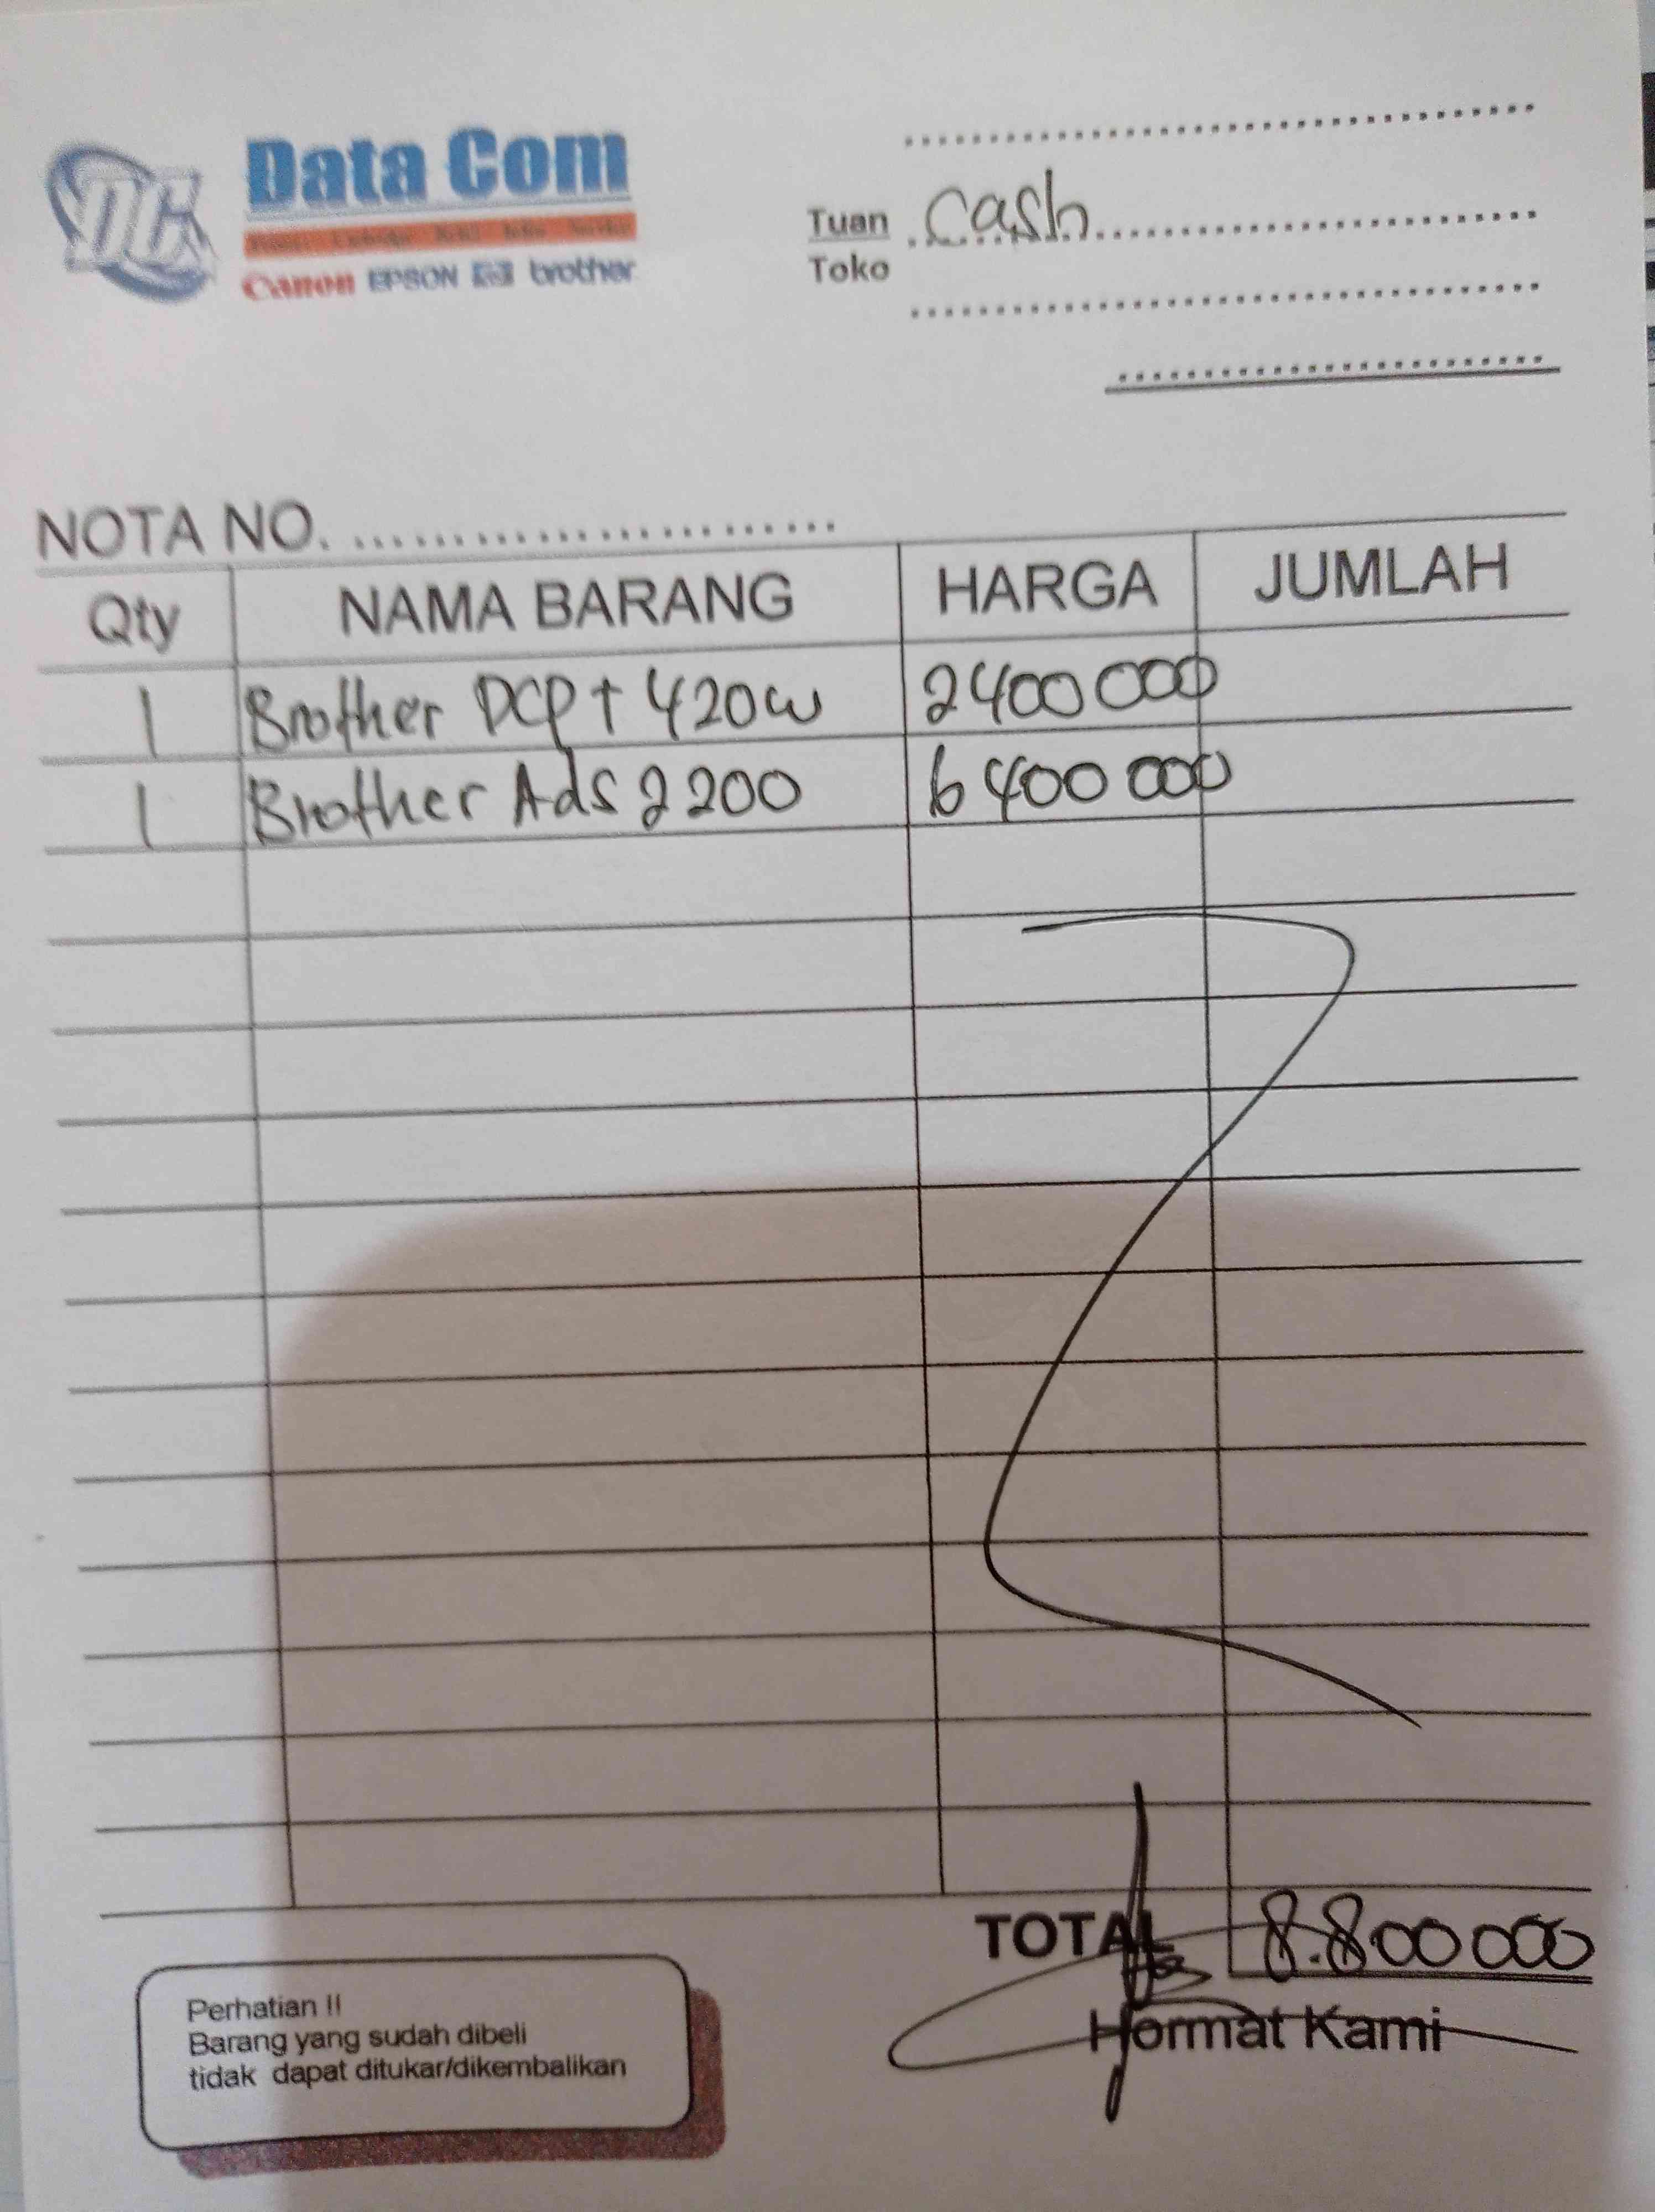 DC
Data Com
Canon EPSON hp brother
Tuan Cash
Toko
NOTA NO.
Qty NAMA BARANG HARGA JUMLAH
1 Brother DCP T 420w 2400 000
1 Brother Ads 2200 6 400 000
TOTAL 8.800 000
Hormat Kami
Perhatian !!
Barang yang sudah dibeli
tidak dapat ditukar/dikembalikan